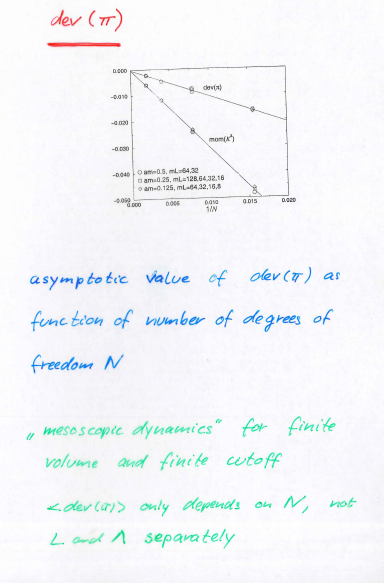 dev (π)
0.000
-0.010
-0.020
-0.030
-0.040
-0.050
dev(π)
mom(k⁴)
○ am=0.5, mL=64,32
□ am=0.25, mL=128,64,32,16
◇ am=0.125, mL=64,32,16,8
0.000 0.005 0.010 0.015 0.020
1/N
asymptotic value of dev(π) as
function of number of degrees of
freedom N
„mesoscopic dynamics" for finite
volume and finite cutoff
<dev(π)> only depends on N, not
L and Λ separately